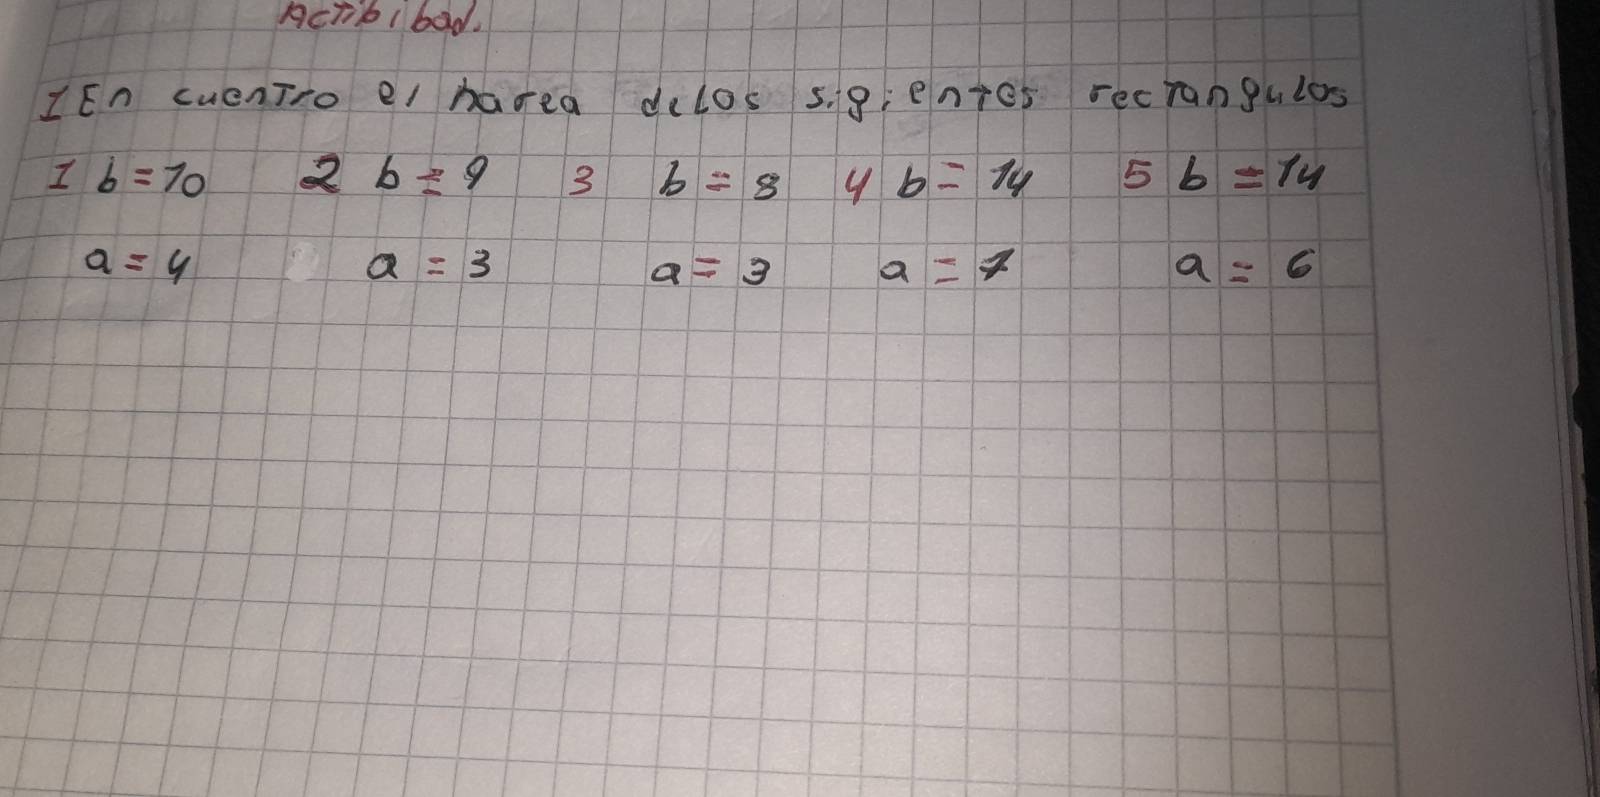 Actibibad.
1 En cuentro el harea delos sigientes rectangulos
1 b=10 2 b=9 3 b=8 4 b=14 5 b=14
a=4 a=3 a=3 a=7 a=6